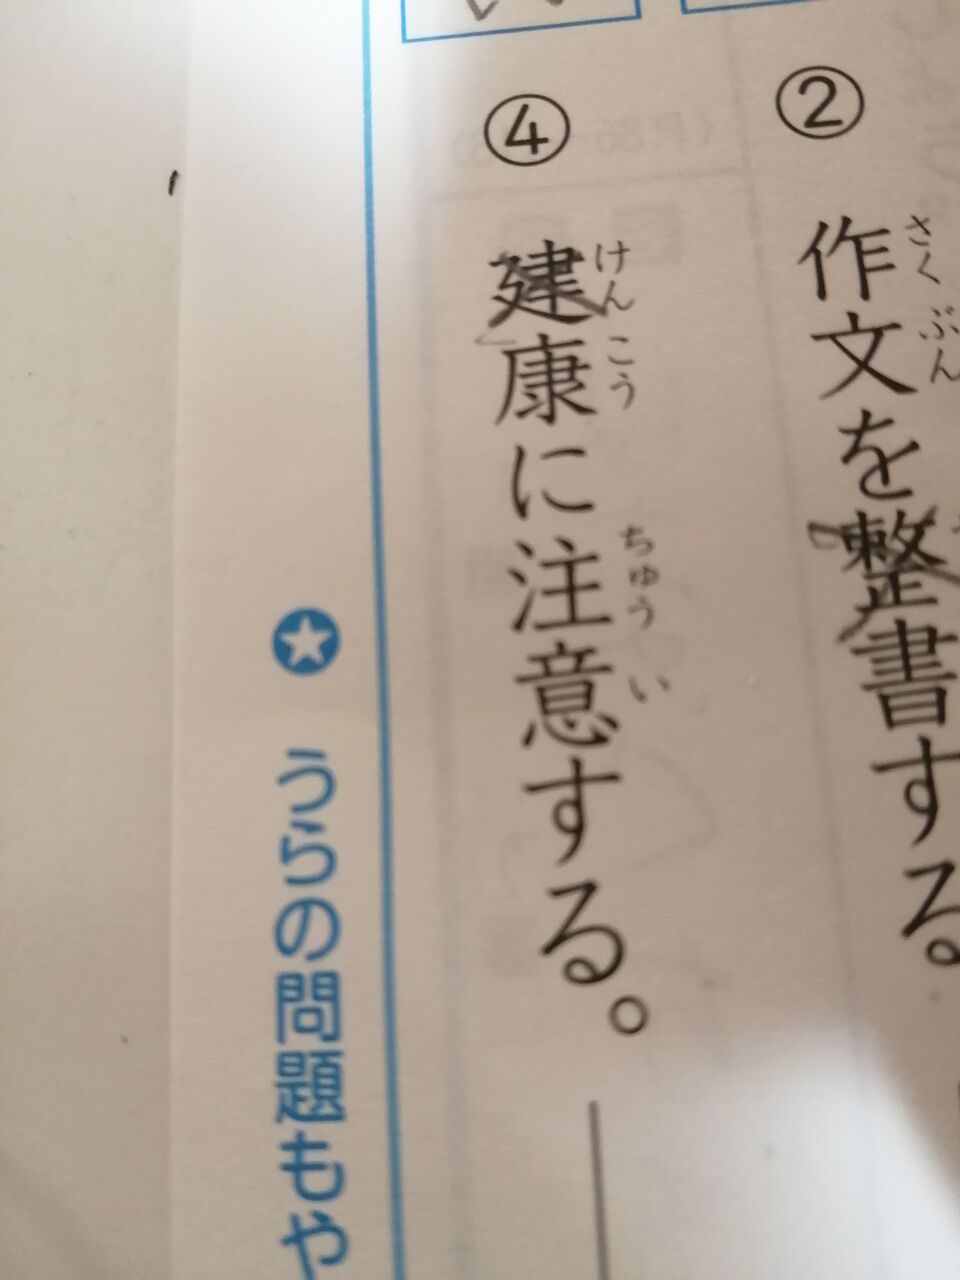 ②
作文を整書する
さくぶん
④
建康に注意する。
けんこう
ちゅうい
うらの問題もや